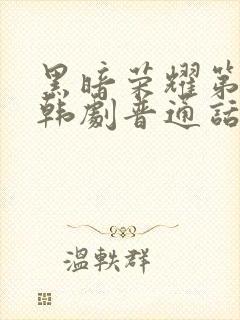 黑暗荣耀第
韩剧普通话
温轶群